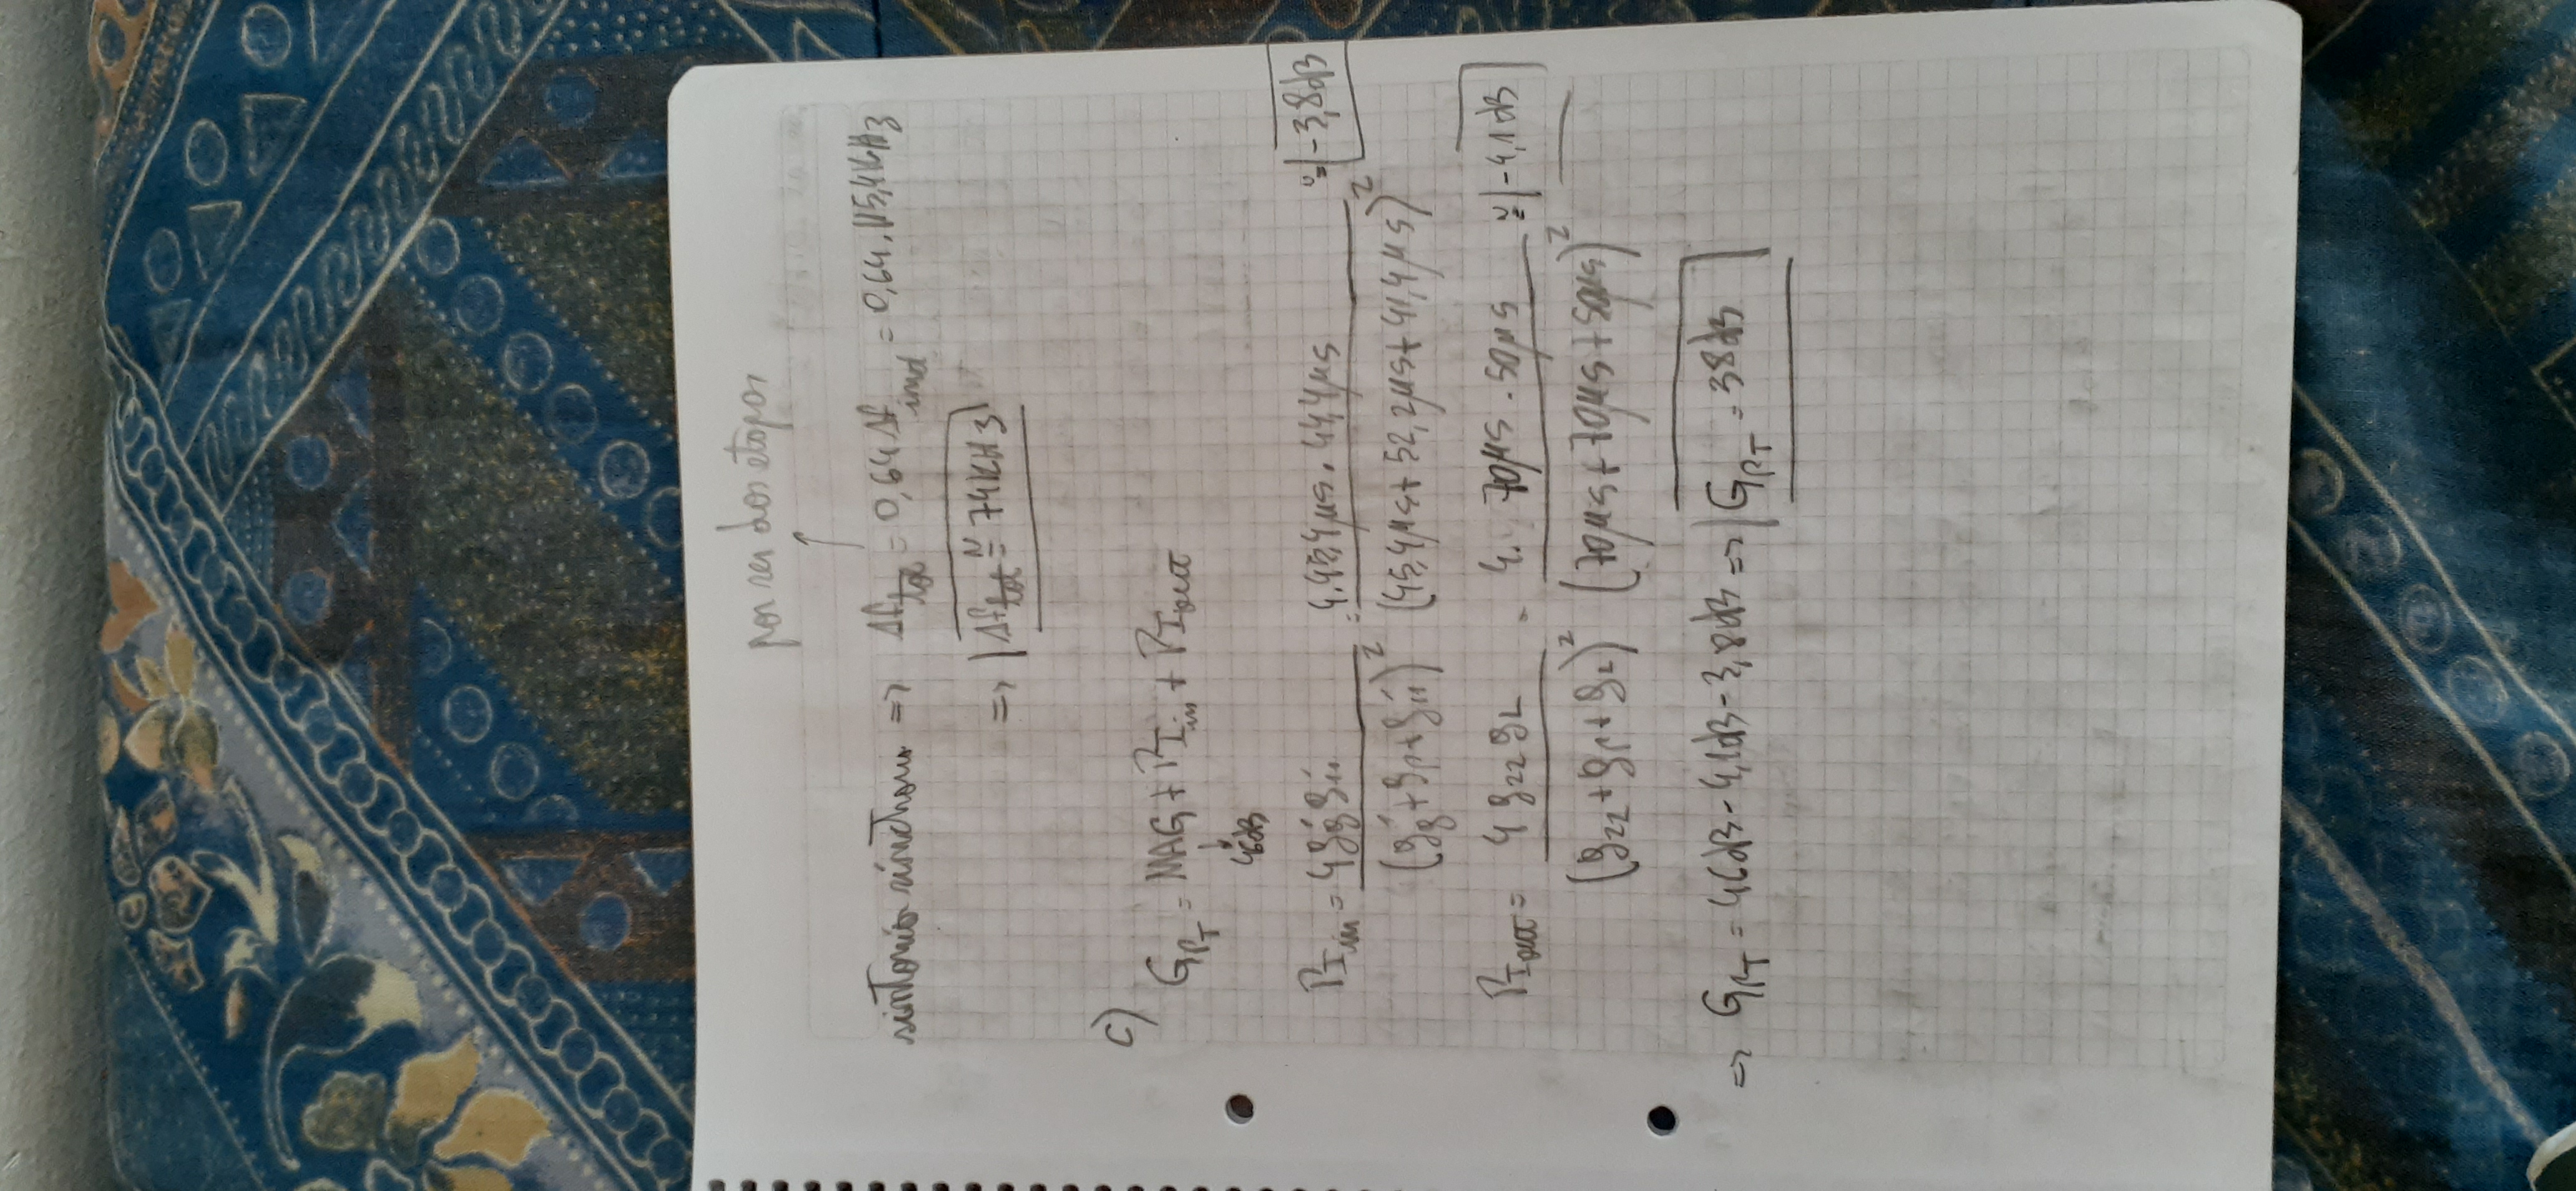 por ser dos etapas
sintonía síncrona => Δf_tot = 0,64 Δf_ind = 0,64 . 115,4 KHz
=> Δf_tot ≅ 74 KHz
c)
G_PT = MAG + P_Iin + P_Iout
46dB
P_Iin = 4 g'g g'11 / (g'g + gp + g'11)² = 4.45,4μs . 44,4μs / (45,4μs + 52,2μs + 41,4μs)² ≅ -3,8dB
P_Iout = 4 g22 gL / (g22 + gp + gL)² = 4. 70μs . 50μs / (70μs + 70μs + 50μs)² ≅ -4,1dB
=> G_PT = 46dB - 4,1dB - 3,8dB => G_PT = 38dB